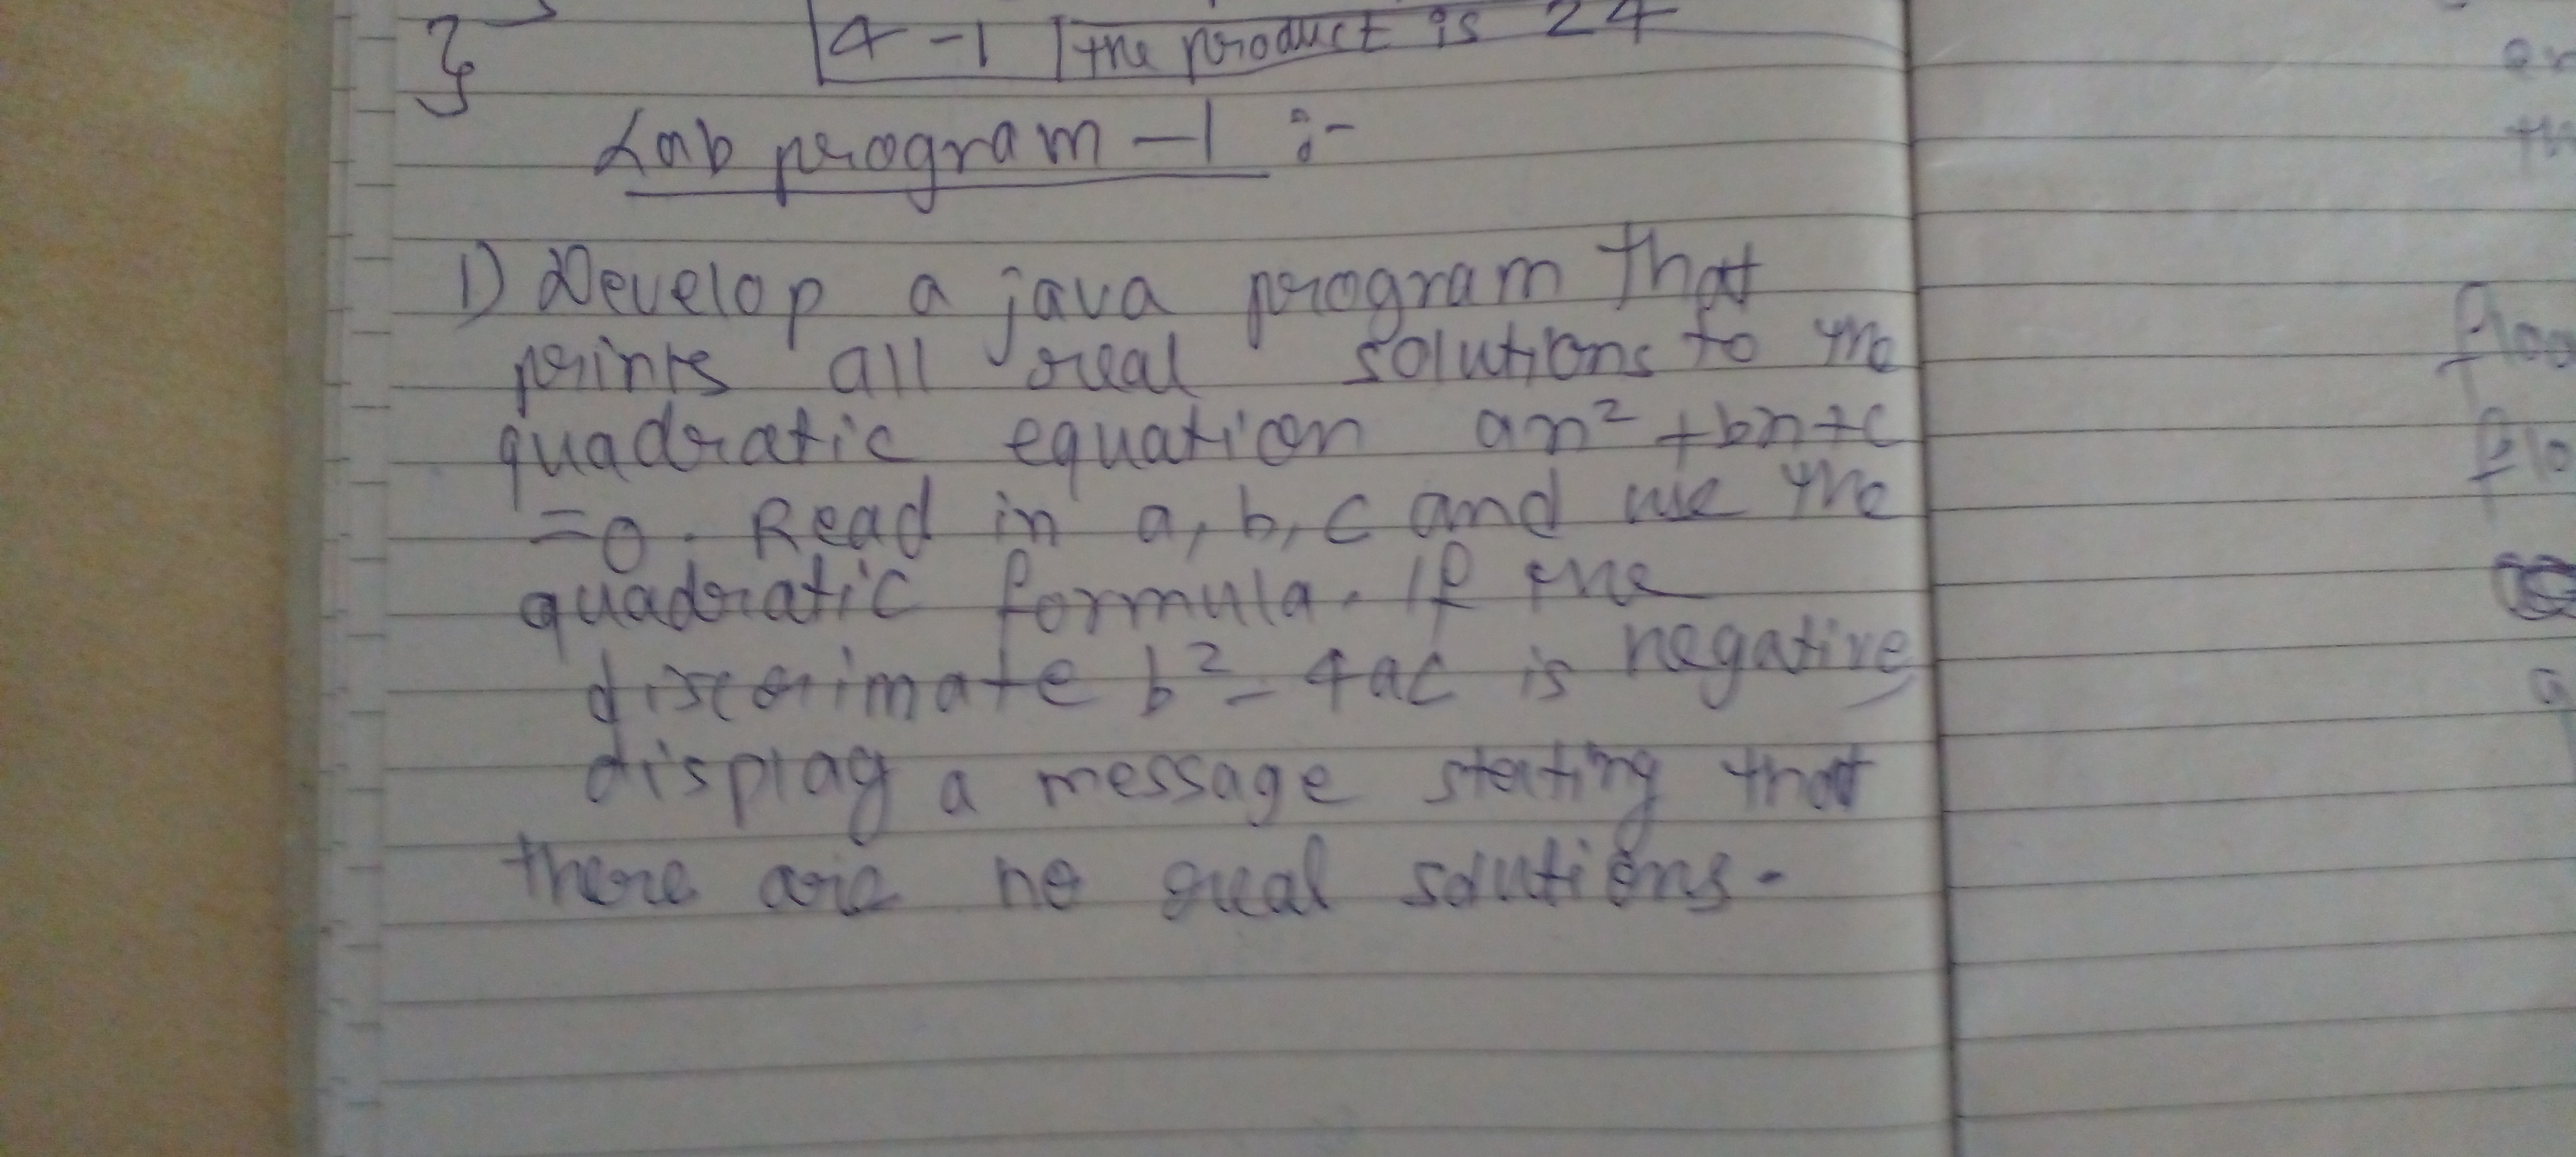 4-1 the product is 24
Lab program -1 :-
1) Develop a java program that
prints all real solutions to the
quadratic equation ax² + bx + c
= 0. Read in a, b, c and use the
quadratic formula. If the
discrimate b² - 4ac is negative
display a message stating that
there are no real solutions.